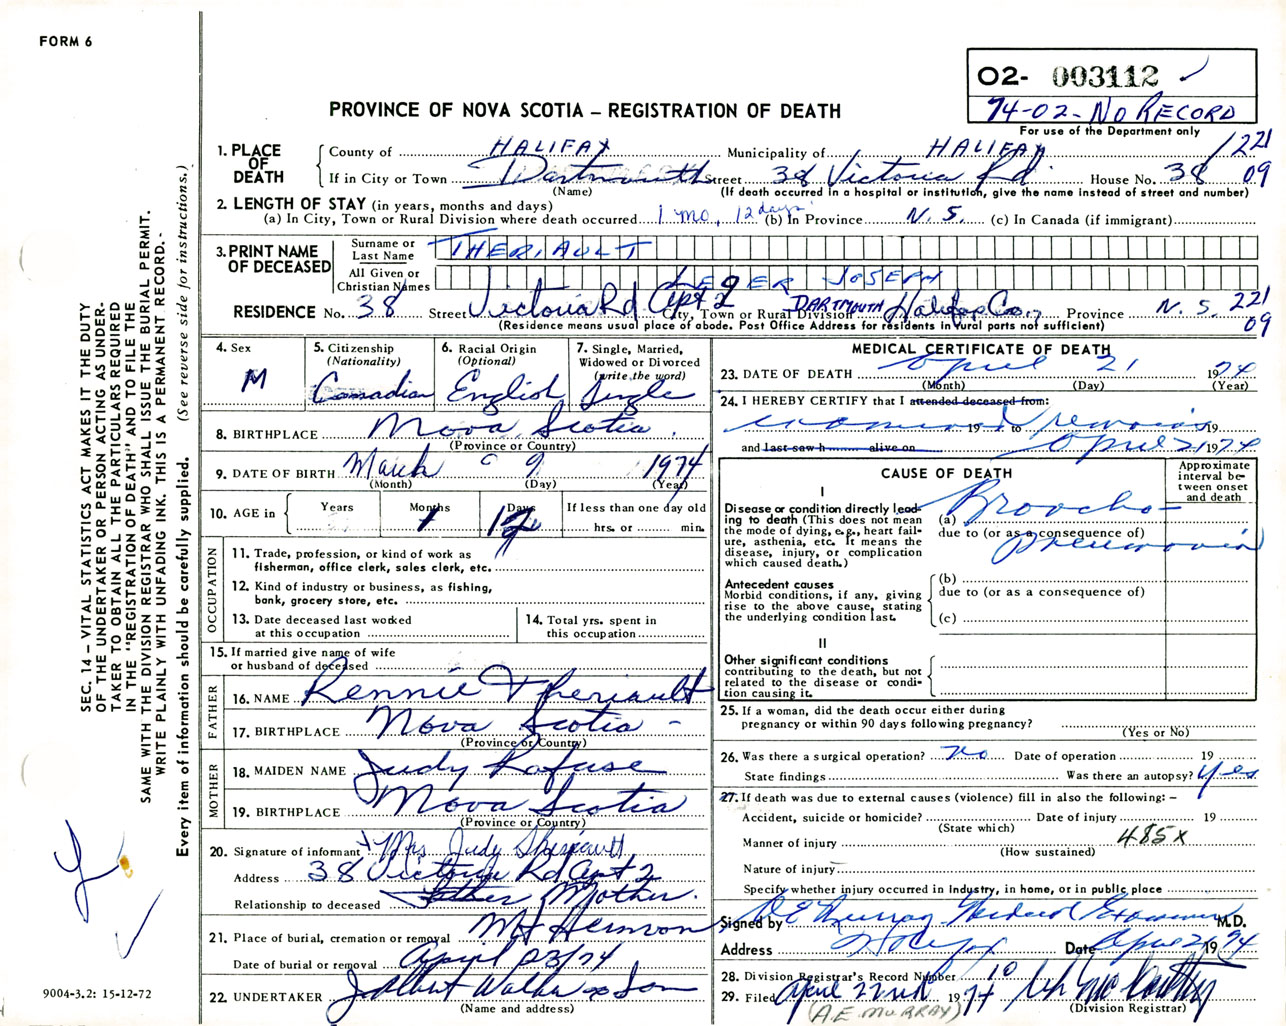 FORM 6
O2- 003112
74-02- No RECORD
For use of the Department only
PROVINCE OF NOVA SCOTIA – REGISTRATION OF DEATH
1. PLACE OF DEATH
County of HALIFAX Municipality of HALIFAX 1221
If in City or Town Dartmouth Street 38 Victoria Rd House No. 38 09
(Name) (If death occurred in a hospital or institution, give the name instead of street and number)
2. LENGTH OF STAY (in years, months and days)
(a) In City, Town or Rural Division where death occurred 1 mo, 12 days (b) In Province N. S. (c) In Canada (if immigrant)
3. PRINT NAME OF DECEASED
Surname or Last Name THERIAULT
All Given or Christian Names LEGER JOSEPH
RESIDENCE No. 38 Street Victoria Rd Apt 2 City, Town or Rural Division DARTMOUTH Halifax Co., Province N. S. 221
09
(Residence means usual place of abode. Post Office Address for residents in rural parts not sufficient)
4. Sex
M
5. Citizenship
(Nationality)
Canadian
6. Racial Origin
(Optional)
English
7. Single, Married,
Widowed or Divorced
(write the word)
Single
8. BIRTHPLACE Nova Scotia.
(Province or Country)
9. DATE OF BIRTH March 9 1974
(Month) (Day) (Year)
10. AGE in
Years Months Days If less than one day old
1 12 hrs. or min.
OCCUPATION
11. Trade, profession, or kind of work as
fisherman, office clerk, sales clerk, etc.
12. Kind of industry or business, as fishing,
bank, grocery store, etc.
13. Date deceased last worked
at this occupation
14. Total yrs. spent in
this occupation
15. If married give name of wife
or husband of deceased
FATHER
16. NAME Rennie Theriault
17. BIRTHPLACE Nova Scotia -
(Province or Country)
MOTHER
18. MAIDEN NAME Judy Rafuse
19. BIRTHPLACE Nova Scotia
(Province or Country)
20. Signature of informant x Mrs Judy Theriault
Address 38 Victoria Rd Apt 2
Relationship to deceased Father Mother.
21. Place of burial, cremation or removal Mt Hermon
Date of burial or removal April 23/74
22. UNDERTAKER J Albert Walker & Son
(Name and address)
MEDICAL CERTIFICATE OF DEATH
23. DATE OF DEATH April 21 1974
(Month) (Day) (Year)
24. I HEREBY CERTIFY that I attended deceased from:
examined 19 to remains 19
and last saw h alive on April 21 1974
CAUSE OF DEATH
Approximate
interval be-
tween onset
and death
I
Disease or condition directly lead-
ing to death (This does not mean
the mode of dying, e.g., heart fail-
ure, asthenia, etc. It means the
disease, injury, or complication
which caused death.)
(a) Broncho-
due to (or as a consequence of)
pneumonia
Antecedent causes
Morbid conditions, if any, giving
rise to the above cause, stating
the underlying condition last.
(b)
due to (or as a consequence of)
(c)
II
Other significant conditions
contributing to the death, but not
related to the disease or condi-
tion causing it.
25. If a woman, did the death occur either during
pregnancy or within 90 days following pregnancy?
(Yes or No)
26. Was there a surgical operation? No Date of operation 19
State findings Was there an autopsy? Yes
27. If death was due to external causes (violence) fill in also the following: –
Accident, suicide or homicide? Date of injury 19
(State which)
Manner of injury 485X
(How sustained)
Nature of injury
Specify whether injury occurred in Industry, in home, or in public place
Signed by A E Murray Medical Examiner M.D.
Address Halifax Date April 21 1974
28. Division Registrar's Record Number 10
29. Filed April 22nd 1974
(Division Registrar)
(A.E. MURRAY)
SEC. 14 – VITAL STATISTICS ACT MAKES IT THE DUTY
OF THE UNDERTAKER OR PERSON ACTING AS UNDER-
TAKER TO OBTAIN ALL THE PARTICULARS REQUIRED
IN THE "REGISTRATION OF DEATH" AND TO FILE THE
SAME WITH THE DIVISION REGISTRAR WHO SHALL ISSUE THE BURIAL PERMIT.
WRITE PLAINLY WITH UNFADING INK. THIS IS A PERMANENT RECORD. -
Every item of information should be carefully supplied. (See reverse side for instructions.)
9004-3.2: 15-12-72